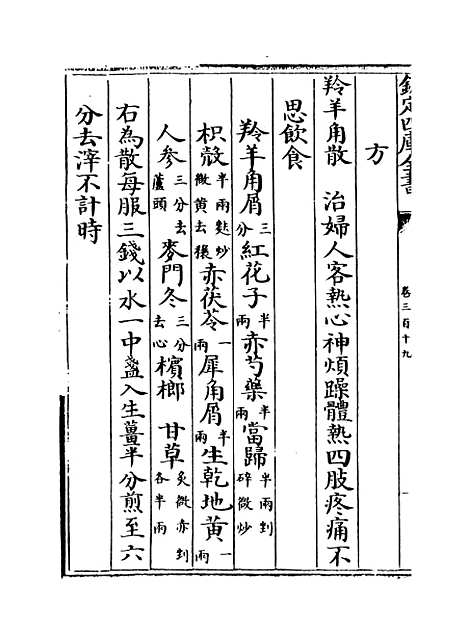 欽定四庫全書
卷三百十九
一
方
羚羊角散　治婦人客熱心神煩躁體熱四肢疼痛不
思飲食
羚羊角屑三分紅花子半兩赤芍藥半兩當歸半兩剉碎微炒
枳殼半兩麩炒微黄去穰赤茯苓一兩犀角屑半兩生乾地黄一兩
人參三分去蘆頭麥門冬三分去心檳榔　甘草炙微赤剉各半兩
右為散每服三錢以水一中盞入生薑半分煎至六
分去滓不計時